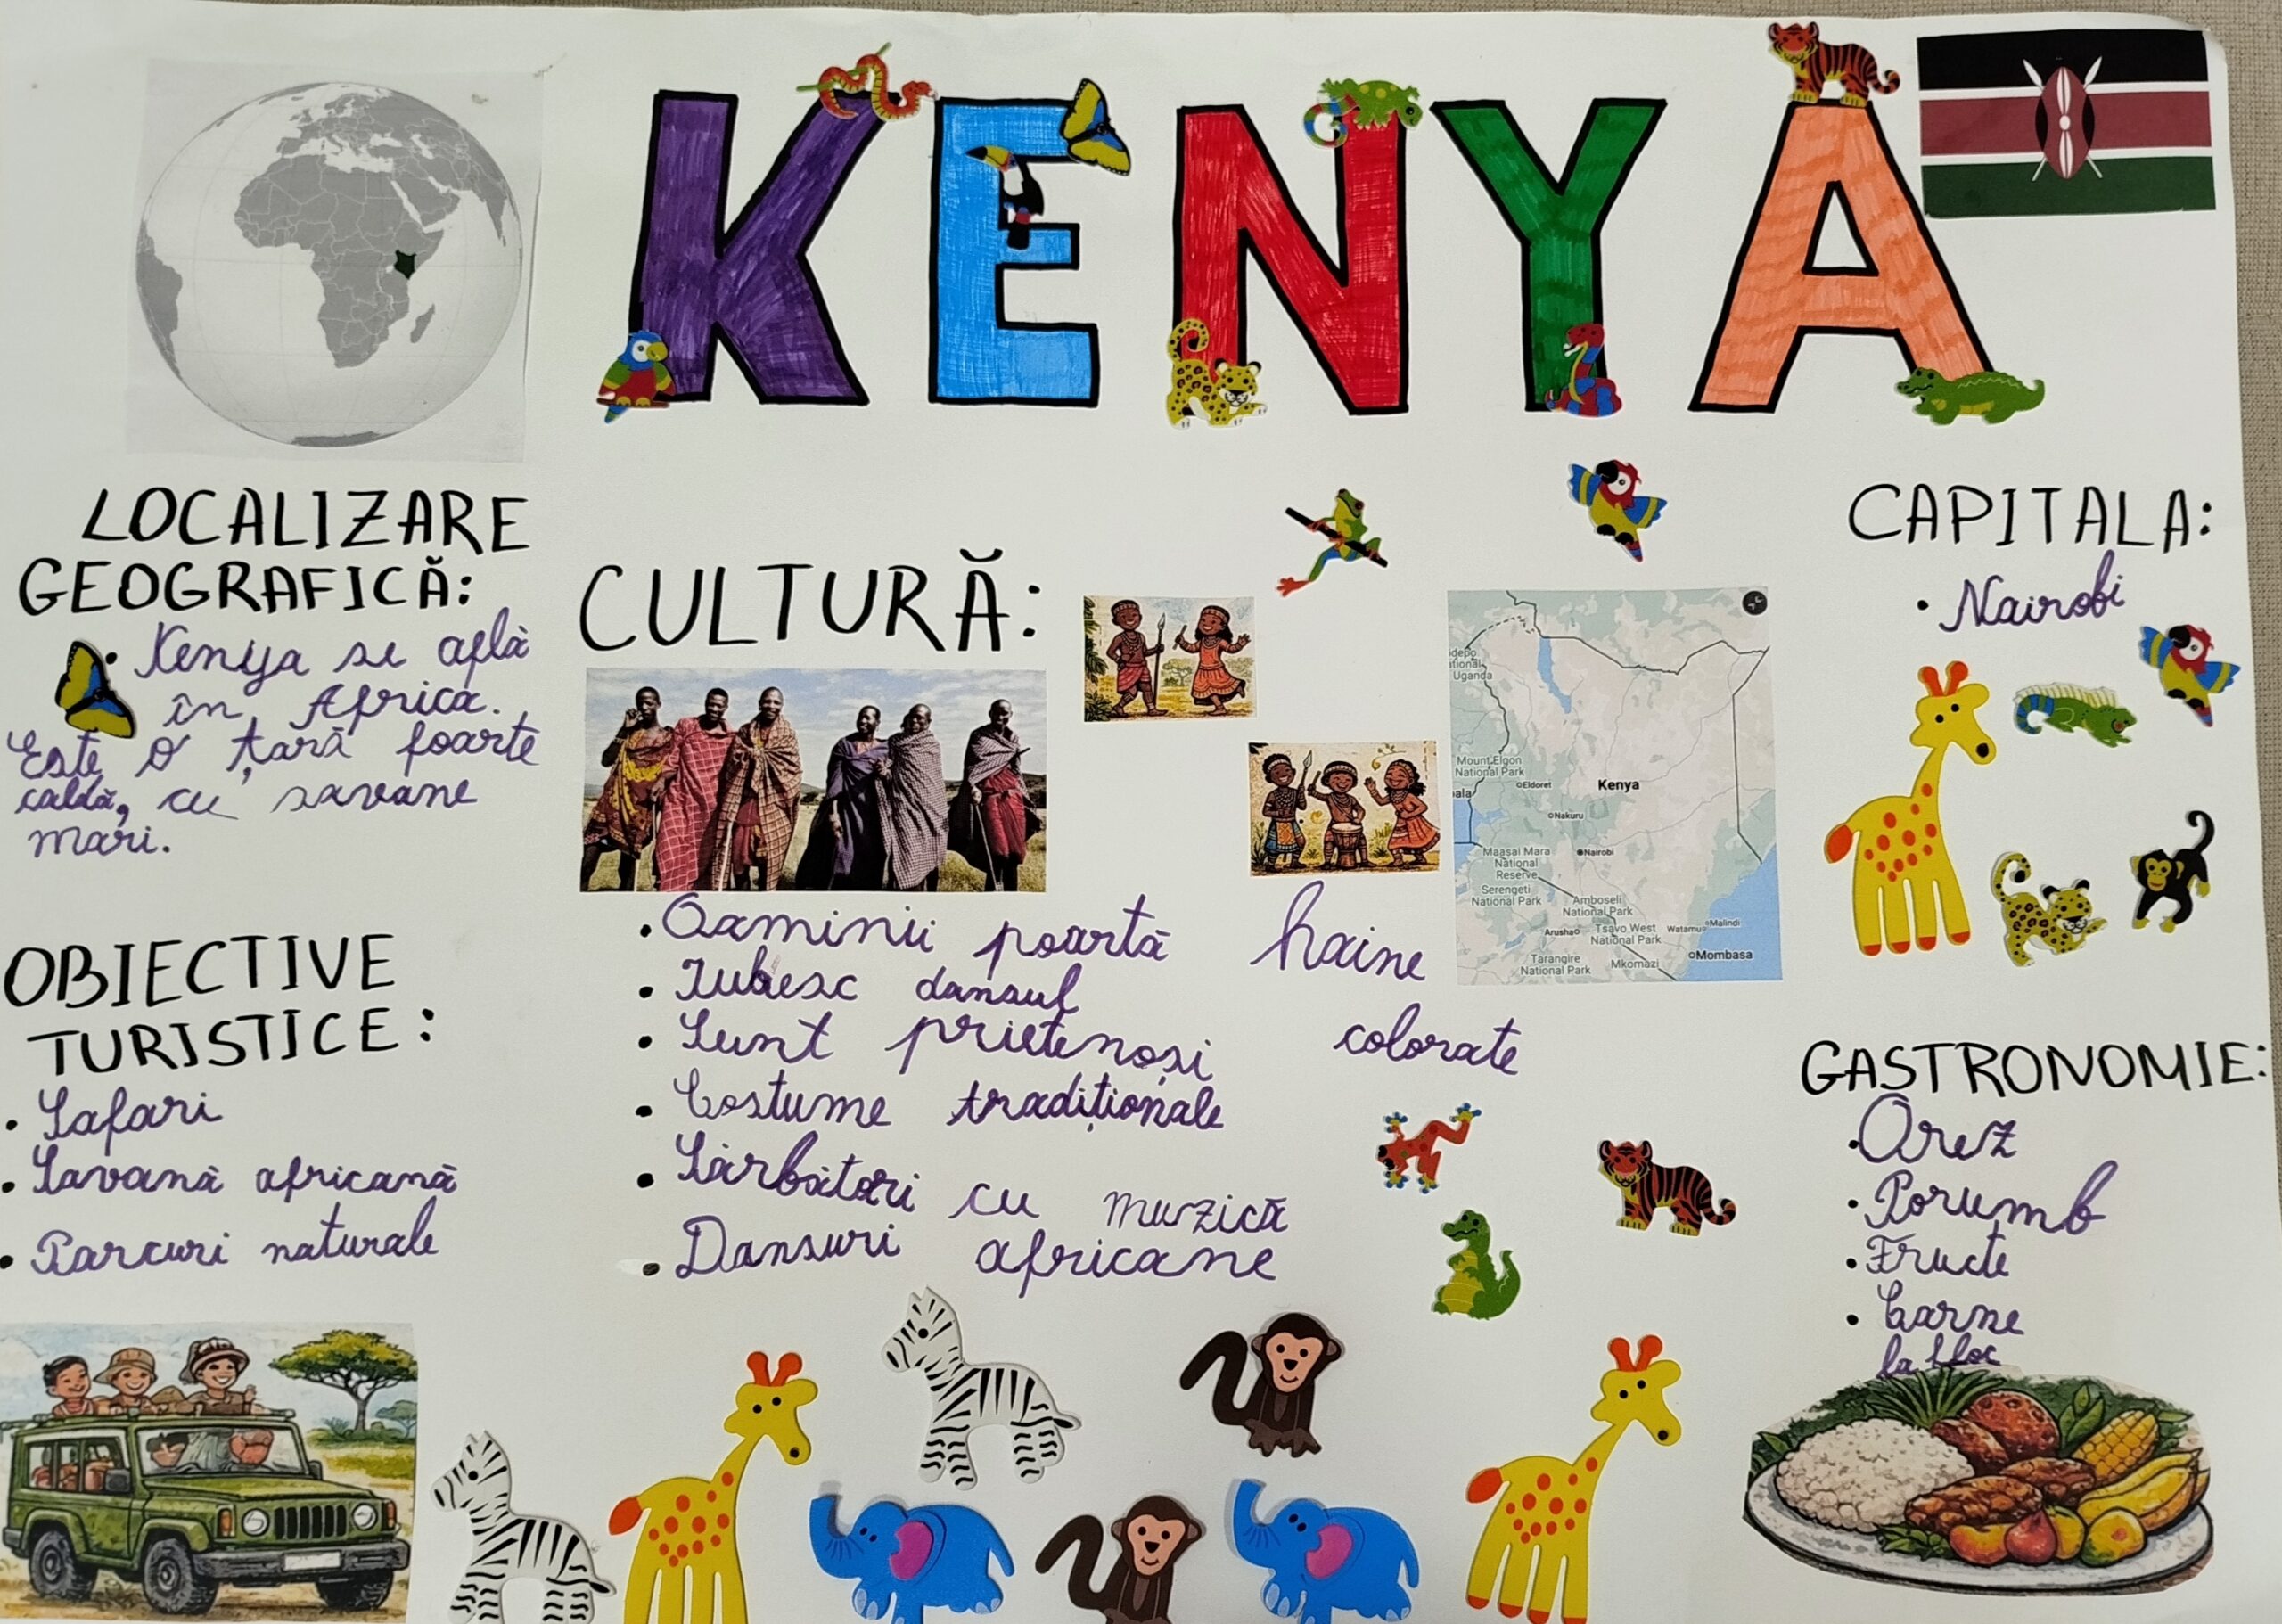 KENYA
LOCALIZARE
GEOGRAFICĂ:
• Kenya se află
în Africa.
Este o țară foarte
caldă, cu savane
mari.
OBIECTIVE
TURISTICE:
• Safari
• Savană africană
• Parcuri naturale
CULTURĂ:
• Oaminii poartă haine
colorate
• Iubesc dansul
• Sunt prietenoși
• Costume tradiționale
• Sărbători cu muzică
• Dansuri africane
National
Uganda
Mount Elgon
National Park
Eldoret
Kenya
Nakuru
Maasai Mara
National
Reserve
Nairobi
Serengeti
National Park
Amboseli
National Park
Arusha
Tsavo West
National Park
Watamu
Malindi
Tarangire
National Park
Mkomazi
Mombasa
CAPITALA:
• Nairobi
GASTRONOMIE:
• Orez
• Porumb
• Fructe
• Carne
la